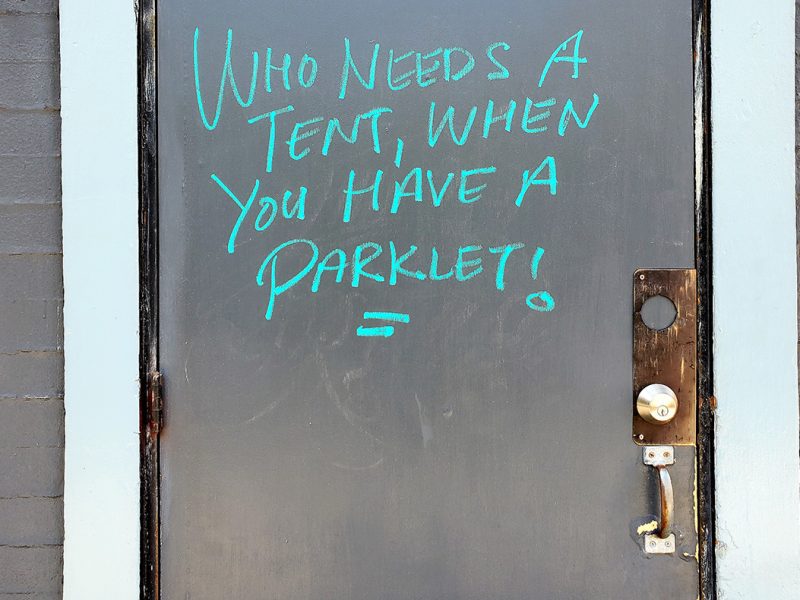 WHO NEEDS A
TENT, WHEN
YOU HAVE A
PARKLET!